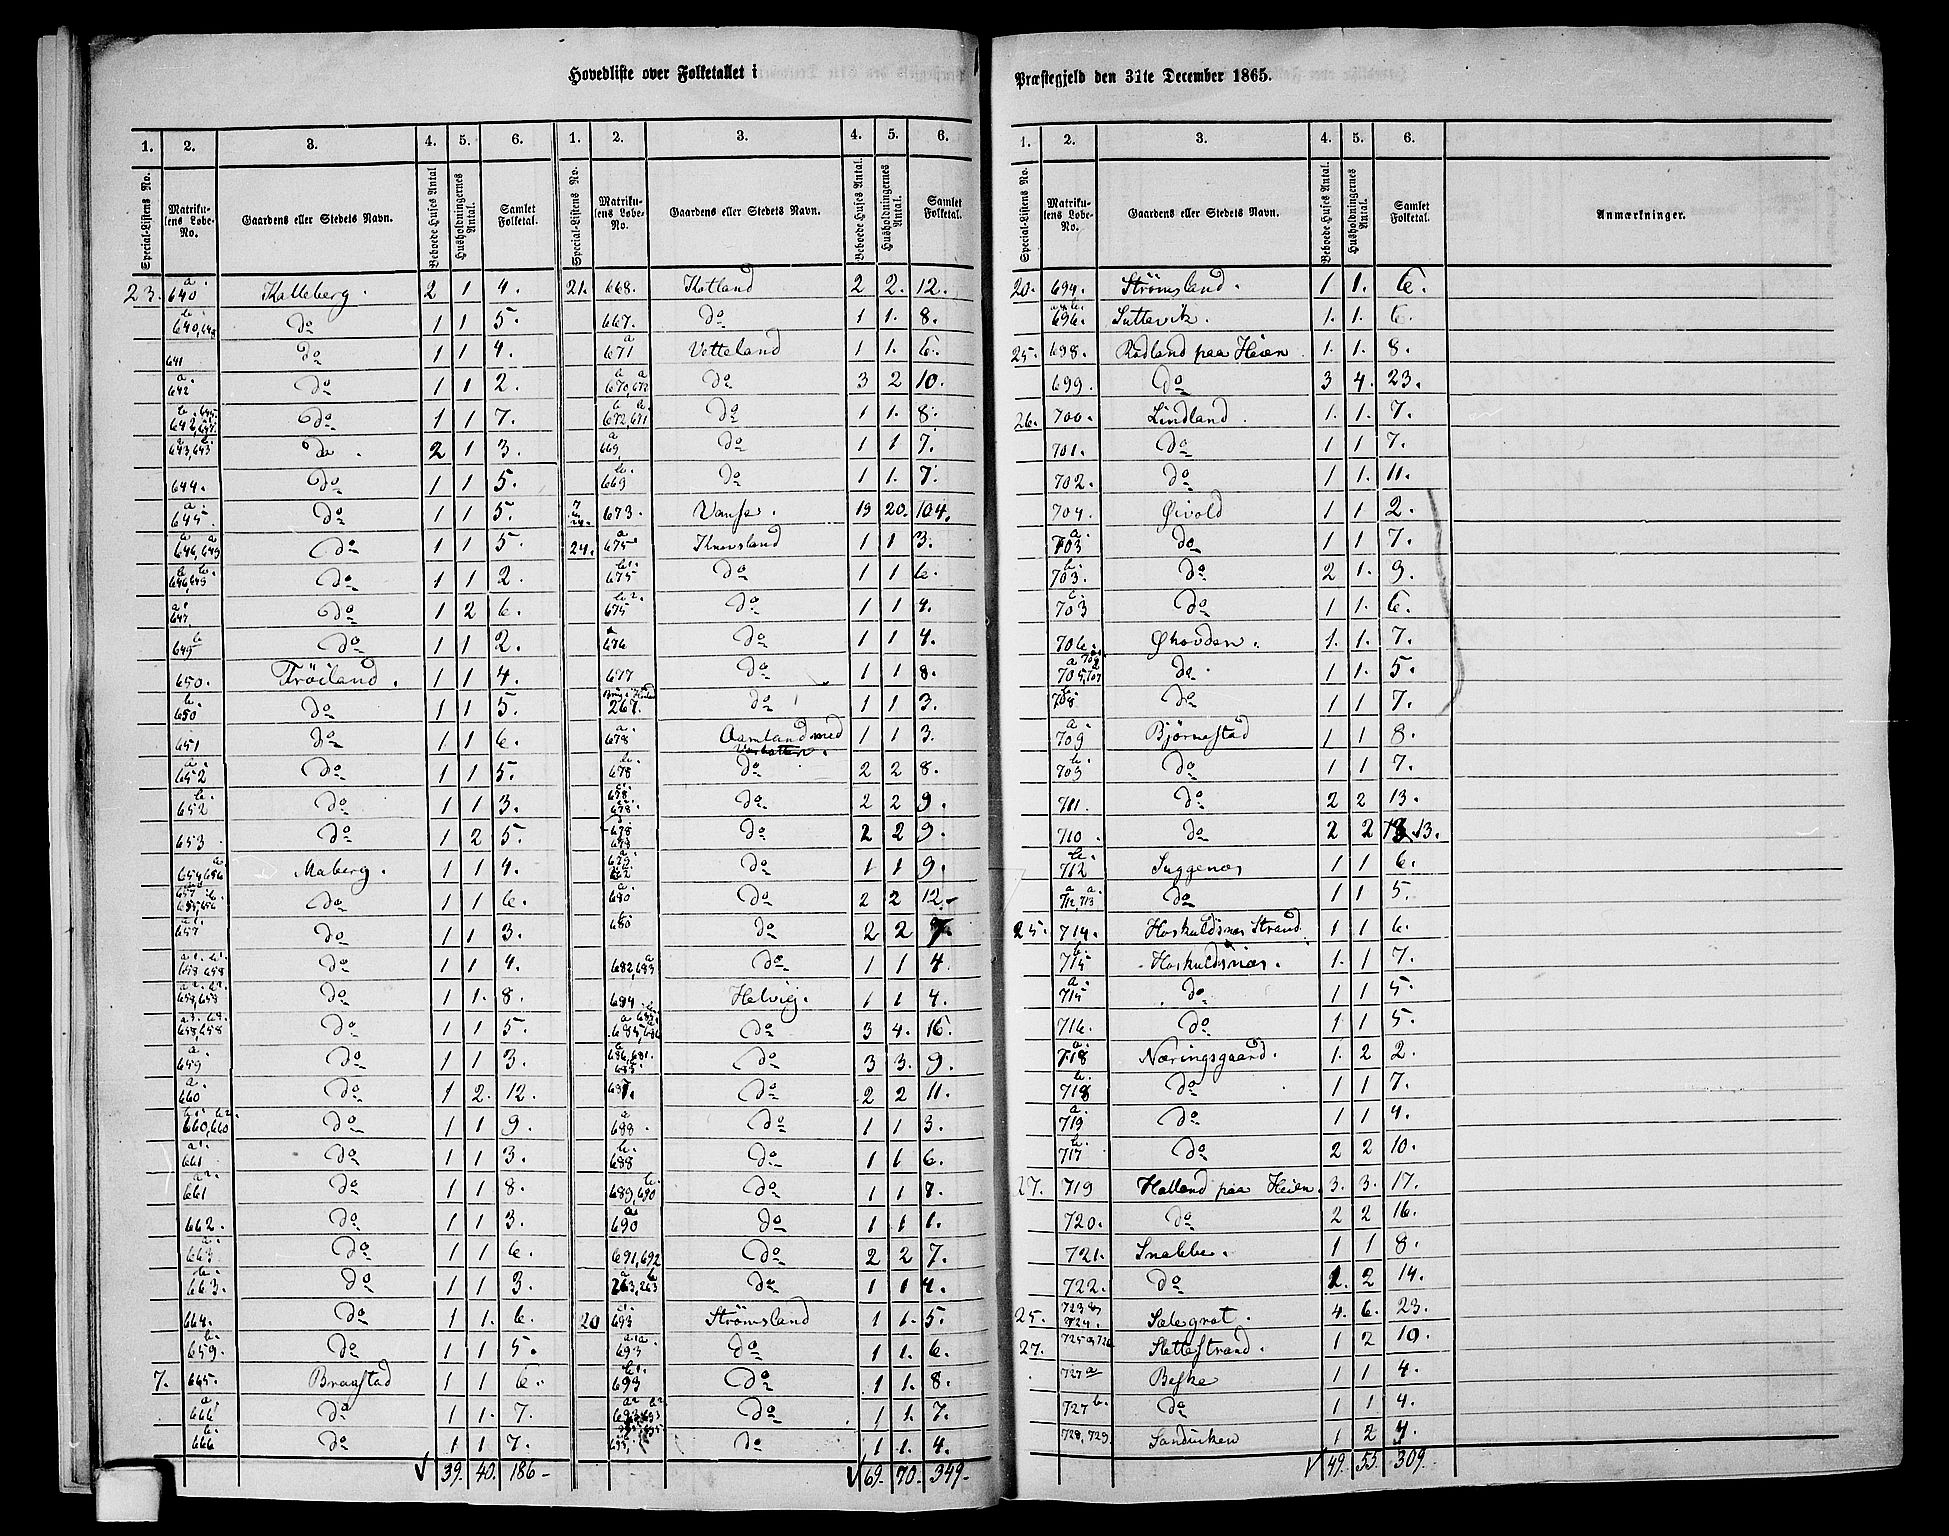 Hovedliste over Folketallet i
Præstegjeld den 31te December 1865.
1. 2. 3. 4. 5. 6. 1. 2. 3. 4. 5. 6.
Special-Listens No. Matrikulens Løbe-No. Gaardens eller Stedets Navn. Beboede Huses Antal Husholdningernes Antal. Samlet Folketal. Special-Listens No. Matrikulens Løbe-No. Gaardens eller Stedets Navn. Beboede Huses Antal. Husholdningernes Antal. Samlet Folketal.
23. 640 a Kalleberg. 2 1 4.
640 b, 648 Do 1 1 5.
641 Do 1 1 4.
642 a Do 1 1 2.
Do 1 1 7.
643 a, 643 b Do 2 1 3.
644. Do 1 1 5.
645 a Do 1 1 5.
646 a, 649 a Do 1 1 5.
646 b, 649 b Do 1 1 2.
647 a Do 1 2 6.
649 b Do 1 1 2.
650. Trøiland. 1 1 4.
650 b Do 1 1 5.
651 Do 1 1 6.
652 a Do 1 1 5.
652 b Do 1 1 3.
653 Do 1 2 5.
654, 656 a Maberg. 1 1 4.
Do 1 1 6.
657 Do 1 1 3.
658 658 Do 1 1 4.
658, 658 Do 1 1. 8.
658, 658 Do 1 1 5.
659 a Do 1 1 3.
660 a Do 1 2. 12.
660, 660 Do 1 1 9.
661 a1 Do 1 1 3.
661 a2 Do 1 1 8.
662. Do 1 1 3.
663 a Do 1 1 6.
663 b Do 1 1 3.
664. Do 1 1. 6.
659 b Do 1 1 5.
7. 665. Braastad 1 1 6.
666 a Do 1 1. 7.
666 b Do 1 1 7.
39. 40. 186
21. 668. Kotland 2 2. 12.
667. Do 1 1. 8.
671 a Vatteland 1 1. 6.
670, 672 Do 3 2 10.
672, 671 Do 1 1. 8.
669 a Do 1 1 7.
669 b Do 1 1. 7.
673. Vanse. 19 20. 104.
24. 675 a 1 1 3.
675 b1 Do 1 1 6.
675 b2 Do 1 1 4.
676 Do 1 1 4.
677 Do 1 1 8.
267. Do 1 1 3.
678 a Aamland med 1 1 3.
678 b Do 2 2 8.
678 Do 2 2 9.
678 Do 2 2 9.
Do 1 1 9.
680 a Do 2 2 12.
680 b Do 2 2
682, 683 a Do 1 1 4
684. Helvig. 1 1 4.
Do 3 4. 16.
Do 3 3. 9.
687. Do 2 2 11.
688 a Do 1 1 3.
688 b Do 1 1 6.
689, 690 b Do 1 1 7.
690 a Do 1 1 1.
691, 692 Do 2 2 7.
263, 263 Do 1 1 4.
20 693 Strömsland 1 1. 5.
693 Do 1 1. 6.
693 b1 Do 1 1. 8.
693 Do 1 1. 7.
Do 1 1. 4.
69. 70. 349
1. 2. 3. 4. 5. 6.
Special-Listens No. Matrikulens Løbe-No. Gaardens eller Stedets Navn. Beboede Huses Antal. Husholdningernes Antal. Samlet Folketal. Anmærkninger.
20. 694. Strömsland. 1 1. 6.
696. Sullevik. 1. 1. 6.
25. 698. Rødland paa Heien 1. 1. 8.
699. Do 3 4. 23.
26. 700. Lindland. 1. 1. 7.
701. Do 1 1 7.
702. Do 1 1. 11.
704. Øivold 1 1 2.
703 a do 1 1 7.
703 b Do 2 1. 9.
703 c Do 1 1. 6.
706. Skovden. 1. 1. 7.
705, 707 do. 1 1. 5.
708 Do 1 1 7.
709 a Bjørnestad 1 1 8.
709 b Do 1 1 7.
711. Do 2 2 13.
710. Do 2 2 13.
712 b Suggenæs 1 1 6.
712, 713 Do 1 1 5.
25. 714. Hoskuldsnæs Strand 1 1 6.
715 b Hoskuldsnæs. 1. 1 7.
715 a Do 1 1 5.
716. Do 1 1 5.
718 a Næringsgaard. 1. 2 2.
718 b Do 1 1 7.
719 a Do 1 1 4.
717 b Do 2 2 10.
27. 719 Halland paa Heien. 3. 3. 17.
720. Do 2 2 16.
721. Snekke. 1 1 8.
722. Do 2. 2 14.
25. 723 & 724. Salegrot. 4. 6. 23.
27. 725 Slettestrand. 1 2 10.
727 a Beske 1 1 4.
727 b Do 1 1 4.
728, 729. Sandviken 1 2 4.
49. 55. 309.